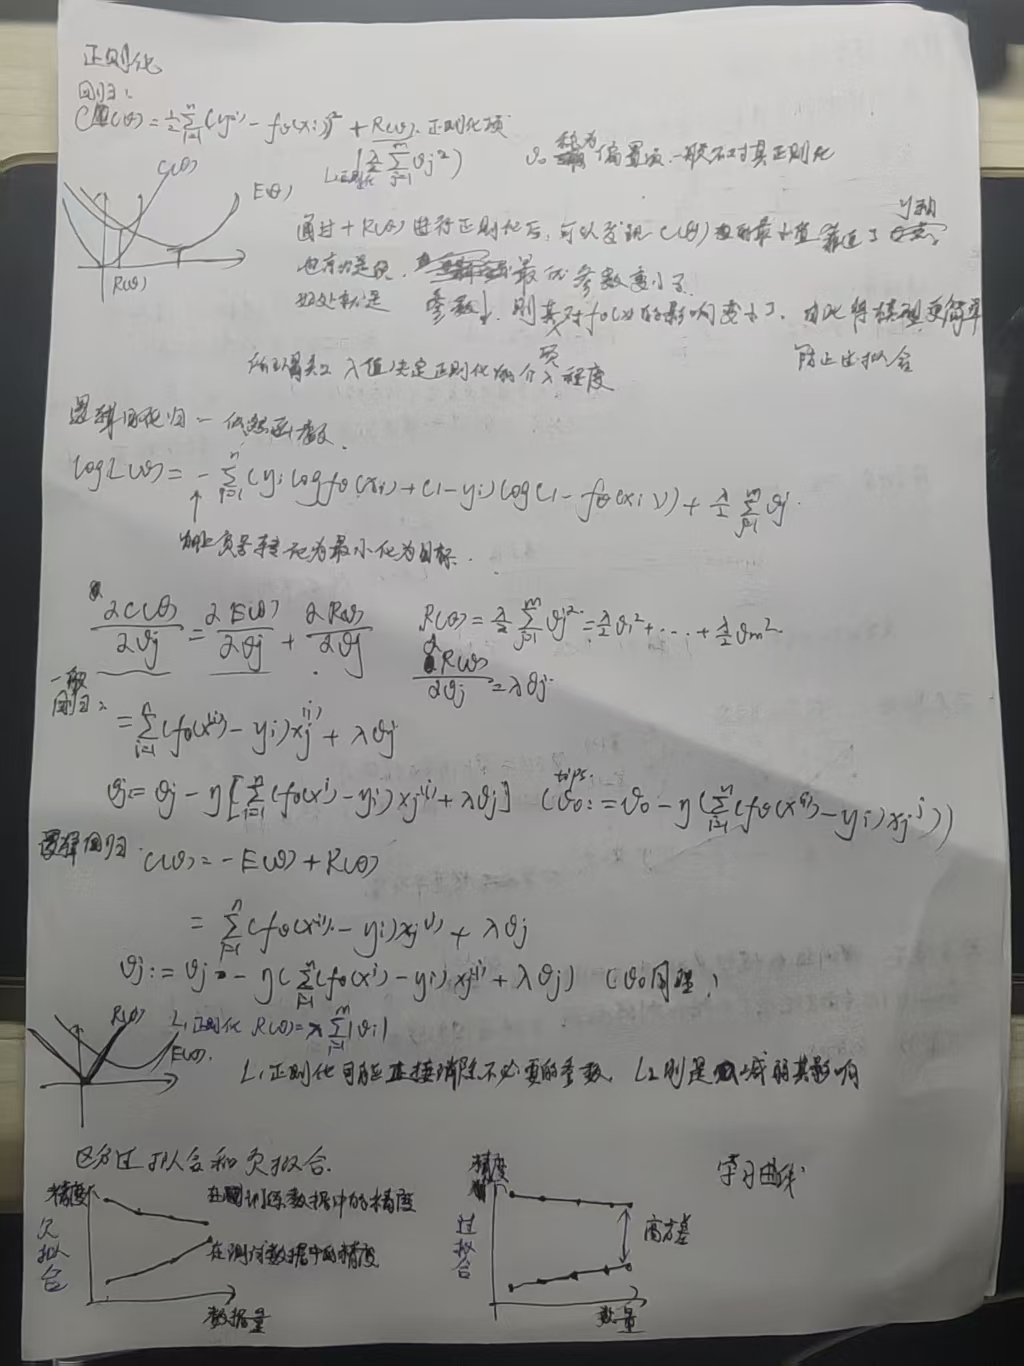 正则化
回归：
C(θ) = ½ Σⁿᵢ₌₁ (y⁽ⁱ⁾ − fθ(xi))² + R(θ). 正则化项
L2正则化 (λ/2 Σᵐⱼ₌₁ θj²)
θ₀ 称为 偏置项.一般不对其正则化
C(θ)
E(θ)
R(θ)
通过 + R(θ) 进行正则化后, 可以发现 C(θ) 的最小值 靠近了 y轴
也就是说. 最优参数变小了.
好处就是 参数↓. 则其对fθ(x)的影响变小了. 由此将模型更简单
防止过拟合
λ值决定正则化的介入程度
逻辑回归 — 似然函数.
log L(θ) = − Σⁿᵢ₌₁ (yi log fθ(xi) + (1 − yi) log(1 − fθ(xi))) + λ/2 Σᵐⱼ₌₁ θj.
↑
加上负号转化为最小化为目标.
∂C(θ)/∂θj = ∂E(θ)/∂θj + ∂R(θ)/∂θj
R(θ) = λ/2 Σᵐⱼ₌₁ θj² = λ/2 θ₁² + ... + λ/2 θm².
∂R(θ)/∂θj = λθj.
一般回归:
= Σⁿᵢ₌₁ (fθ(x⁽ⁱ⁾) − yi) xj⁽ⁱ⁾ + λθj
θj := θj − η [Σⁿᵢ₌₁ (fθ(xⁱ) − yi) xj⁽ⁱ⁾ + λθj] (tips: θ₀ := θ₀ − η (Σⁿᵢ₌₁ (fθ(x⁽ⁱ⁾) − yi) xjʲ))
逻辑回归. C(θ) = −E(θ) + R(θ)
= Σⁿᵢ₌₁ (fθ(x⁽ⁱ⁾) − yi) xj⁽ⁱ⁾ + λθj
θj := θj − η (Σⁿᵢ₌₁ (fθ(xⁱ) − yi) xj⁽ⁱ⁾ + λθj) (θ₀同理)
R(θ)
E(θ).
L₁正则化 R(θ) = λ Σᵐᵢ₌₁ |θi|
L₁正则化可能直接消除不必要的参数. L2则是减弱其影响
区分过拟合和欠拟合.
学习曲线
精度
欠拟合
在训练数据中的精度
在测试数据中的精度
数据量
精度
过拟合
高方差
数量